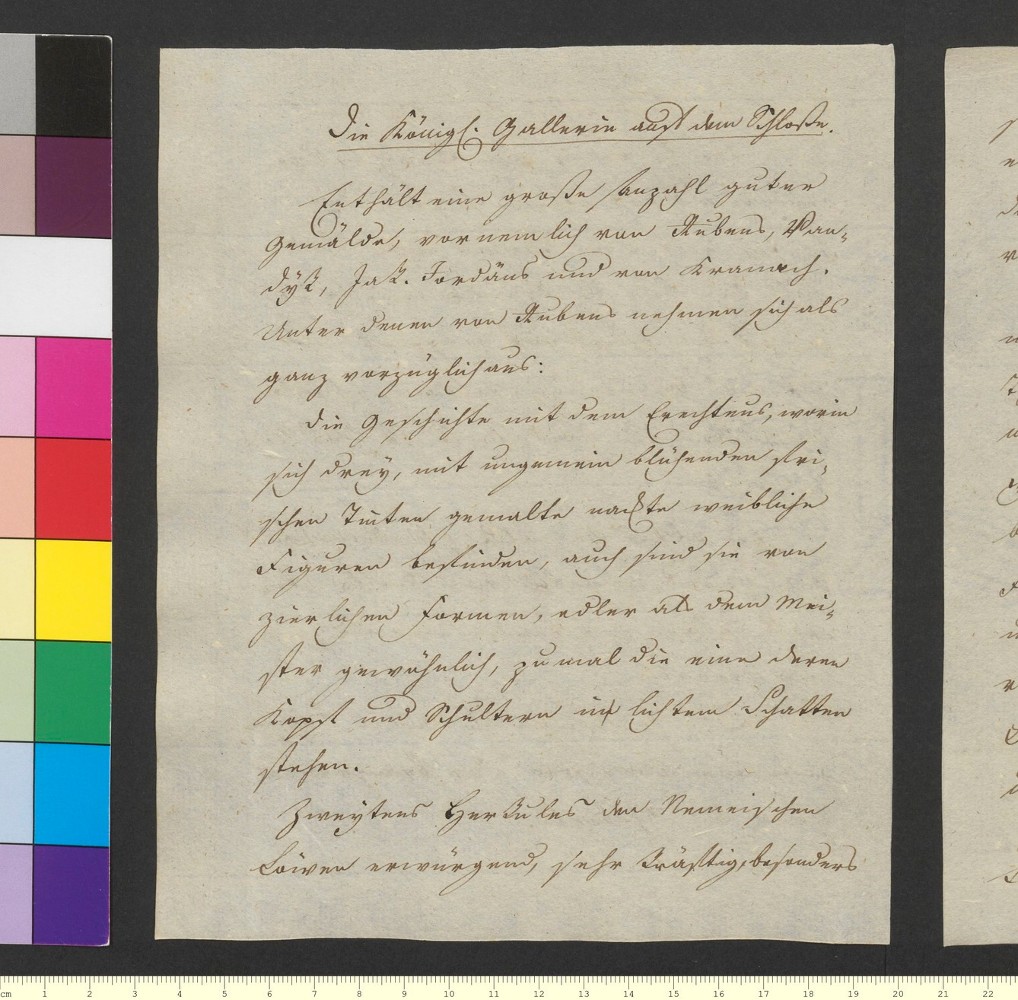 Die Königl: Gallerie auf dem Schloße.
Enthält eine große Anzahl guter
Gemälde, vornemlich von Rubens, Van-
dyk, Jak. Jordäns und von Kranach.
Unter denen von Rubens nehmen sich als
ganz vorzüglich aus:
Die Geschichte mit dem Erechteus, worin
sich drey, mit ungemein blühenden fri-
schen Tinten gemalte nackte weibliche
Figuren befinden, auch sind sie von
zierlichen Formen, edler als dem Mei-
ster gewöhnlich, zumal die eine deren
Kopf und Schultern in lichtem Schatten
stehen.
Zweytens Herkules den Nemeischen
Löwen erwürgend, sehr kräftig, besonders
cm 1 2 3 4 5 6 7 8 9 10 11 12 13 14 15 16 17 18 19 20 21 22